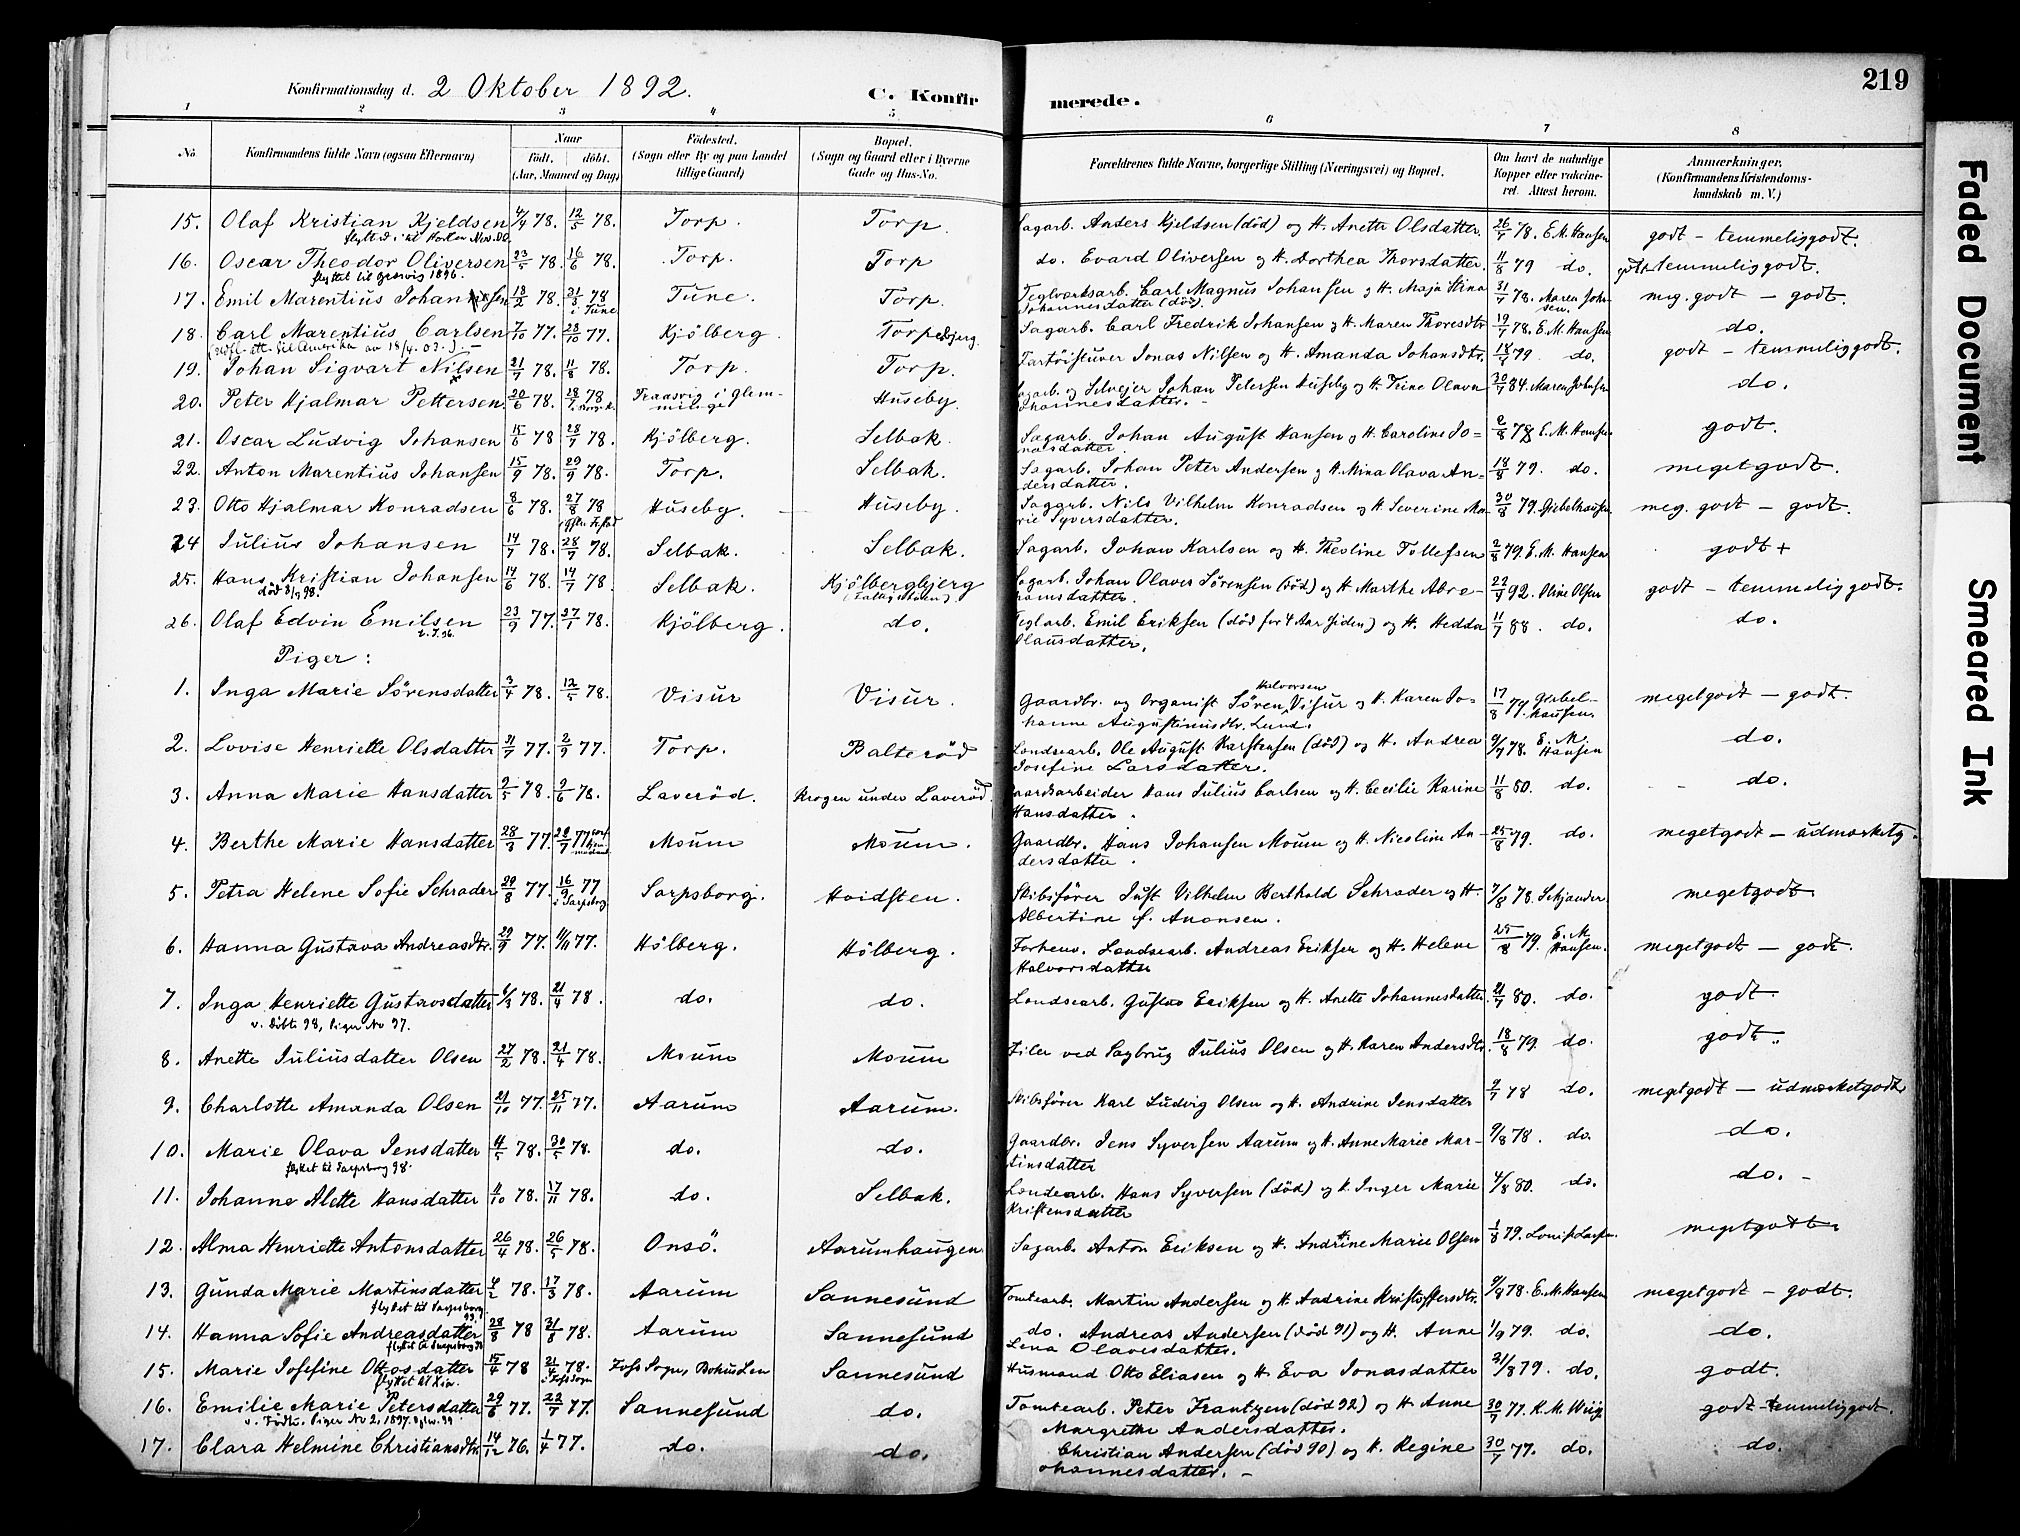 Konfirmationsdag d. 2 Oktober 1892.
C. Konfirmerede.
219
1 2 3 4 5 6 7 8
No.
Konfirmandens fulde Navn (ogsaa Efternavn)
Naar
født. døbt.
(Aar, Maaned og Dag)
Fødested.
(Sogn eller By og paa Landet
tillige Gaard)
Bopæl.
(Sogn og Gaard eller i Byerne
Gade og Hus-No.
Forældrenes fulde Navne, borgerlige Stilling (Næringsvei) og Bopæl.
Om havt de naturlige
Kopper eller vakcine-
ret. Attest herom.
Anmærkninger.
(Konfirmandens Kristendoms-
kundskab m. V.)
15. Olaf Kristian Kjeldsen 4/4 78. 12/5 78. Torp. Torp. Sagarb. Anders Kjeldsen (död) og H. Anette Olsdatter. 26/7 78. E. M. Hansen godt - temmeliggodt.
16. Oscar Theodor Oliversen 23/5 78. 16/6 78. Torp. Torp do. Evard Oliversen og H. Dorthea Thorsdatter. 11/8 79 do. godt temmeliggodt.
flyttet til Greåvig 1896.
17. Emil Marentius Johansen 18/2 78. 31/3 78 i Tune Tune. Torp. Teglværksarb. Carl Magnus Johansen og H. Maja Stina 31/7 78. Maren Johnsen. meg. godt - godt.
Johannesdatter (död).
18. Carl Marentius Carlsen 7/10 77. 28/10 77. Kjölberg. Torpebjerg. Sagarb. Carl Fredrik Johansen og H. Maren Thoresdtr 19/7 78. E. M. Hansen do.
(Udfl. att. til Amerika av 18/4. 03.) -
19. Johan Sigvart Nilsen 21/7 78. 11/8 78. Torp. Torp. Jonas Nilsen og H. Amanda Johansdtr. 18/7 79 do. godt - temmeliggodt.
20. Peter Hjalmar Pettersen 20/6 78. 28/7 78 Huseby. Sagarb. og Selvejer Johan Petersen Huseby og H. Trine Olava 30/7 84. Maren Johnsen do.
Johannesdatter. -
21. Oscar Ludvig Johansen 15/6 78 28/7 78. Kjölberg. Selbak. Sagarb. Johan August Hansen og H. Caroline Jo= 2/8 78 E. M. Hansen godt.
nasdatter.
22. Anton Marentius Johansen 15/9 78. 29/9 78. Torp. Selbak. Sagarb. Johan Peter Andersen og H. Mina Olava An- 18/8 79. do. megetgodt.
dersdatter.
23. Otto Hjalmar Konradsen 8/6 78. 27/8 78 Huseby. Huseby. Sagarb. Nils Vilhelm Konradsen og H. Severine Ma- 30/8 79. Giebelhausen meg. godt - godt.
rie Syversdatter.
24 Julius Johansen 14/7 78. 28/7 78. Selbak. Selbak. Sagarb. Johan Karlsen og H. Theoline Tollefsen 2/8 79. E. M. Hansen godt +
25. Hans Kristian Johansen 14/6 78. 14/7 78. Selbak. Kjölbergbjerg Sagarb. Johan Olaves Sörensen (död) og H. Marthe Abra- 22/9 92. Oline Olsen godt - temmeliggodt.
død 8/9 98. hamsdatter.
26. Olaf Edvin Emilsen 23/9 77. 27/1 78. Kjölberg. do. Teglarb. Emil Eriksen (död for 4 Aar siden) og H. Hedda 11/7 88. do. do.
Olausdatter.
Piger:
1. Inga Marie Sörensdatter 3/4 78. 12/5 78. Visur Visur. Gaardbr. og Organist Sören Halvorsen Visur og H. Karen Jo- 17/8 79. Giebelhausen. megetgodt - godt.
hanne Augustinusdtr. Lund.
2. Lovise Henriette Olsdatter 31/7 77. 2/9 77. Torp. Balteröd Landsearb. Ole August Karstensen (död) og H. Andrea 9/7 78. E. M. Hansen do.
Josefine Larsdatter.
3. Anna Marie Hansdatter 9/5 78. 9/6 78. Laveröd. Krogen under Laveröd. Gaardsarbeider Hans Julius Carlsen og H. Cecilie Karine 11/8 80. do. do.
Hansdatter.
4. Berthe Marie Hansdatter 28/8 77. 28/9 77 Moum Moum. Gaardbr. Hans Johansen Moum og H. Nicoline An- 25/8 79. do. megetgodt - udmærketg.
dersdatter.
5. Petra Helene Sofie Schrader 20/8 77. 16/9 77 i Sarpsborg Sarpsborg. Hvidsten. Skibsförer Just Vilhelm Berthold Schrader og H. 7/8 78. Schjander megetgodt
Albertine f. Aronsen.
6. Hanna Gustava Andreasdtr. 29/9 77. 11/11 77. Hölberg. Hölberg. Forhenv. Landsearb. Andreas Eriksen og H. Helene 25/8 79. E. M. Hansen. megetgodt - godt.
Halvorsdatter
7. Inga Henriette Gustavsdatter 6/3 78. 21/4 78. do. do. Landsearb. Gustav Eriksen og H. Anette Johannesdatter. 21/7 80. do. godt.
v. Döbte 98, Piger No 37.
8. Anette Juliusdatter Olsen 27/2 78. 21/4 78. Moum Moum Filer ved Sagbrug Julius Olsen og H. Karen Andersdtr. 18/8 79. do. godt.
9. Charlotte Amanda Olsen 21/10 77. 25/11 77. Aarum Aarum. Skibsförer Karl Ludvig Olsen og H. Andrine Jensdatter 9/7 78 do. megetgodt - udmærketgodt
10. Marie Olava Jensdatter 4/5 78. 30/5 78. do. do. Gaardbr. Jens Syversen Aarum og H. Anne Marie Mar- 9/8 78. do. do.
flyttet til Sarpsborg 98. tinsdatter
11. Johanne Alette Hansdatter 11/10 78. 17/11 78. do. Selbak. Landsearb. Hans Syversen (död) og H. Inger Marie 4/8 80. do. do. -
Kristensdatter
12. Alma Henriette Antonsdatter 26/4 78. 26/5 78. Onsö. Aarumhaugen. Sagarb. Anton Eriksen og H. Andrine Marie Olsen 1/8 79. megetgodt.
13. Gunda Marie Martinsdatter 4/2 78. 17/3 78. Aarum Sannesund Tomtearb. Martin Andersen og H. Andrine Kristoffersdtr. 9/8 78. E. M. Hansen megetgodt - godt.
flyttet til Sarpsborg
14. Hanna Sofie Andreasdatter 28/8 78 31/8 78. Aarum Sannesund do. Andreas Andersen (död 91) og H. Anne 1/9 79. do. do.
Lena Olavesdatter.
15. Marie Josefine Ottosdatter 15/4 78 21/4 78. Foss Sogn, Bohus Len Sannesund Husmand Otto Eliasen og H. Eva Jonasdatter 21/8 79. do. godt.
16. Emilie Marie Petersdatter 29/6 77. 22/7 77. Sannesund do. Tomtearb. Peter Frantzen (död 92) og H. Anne 30/7 77. godt - temmeliggodt.
Margrethe Andersdatter.
17. Clara Helmine Christiansdtr. 14/12 76. 1/4 77. do. do. Christian Andersen (död 90) og H. Regine 30/7 77. do. do.
Johannesdatter. -
Faded Document
Smeared Ink